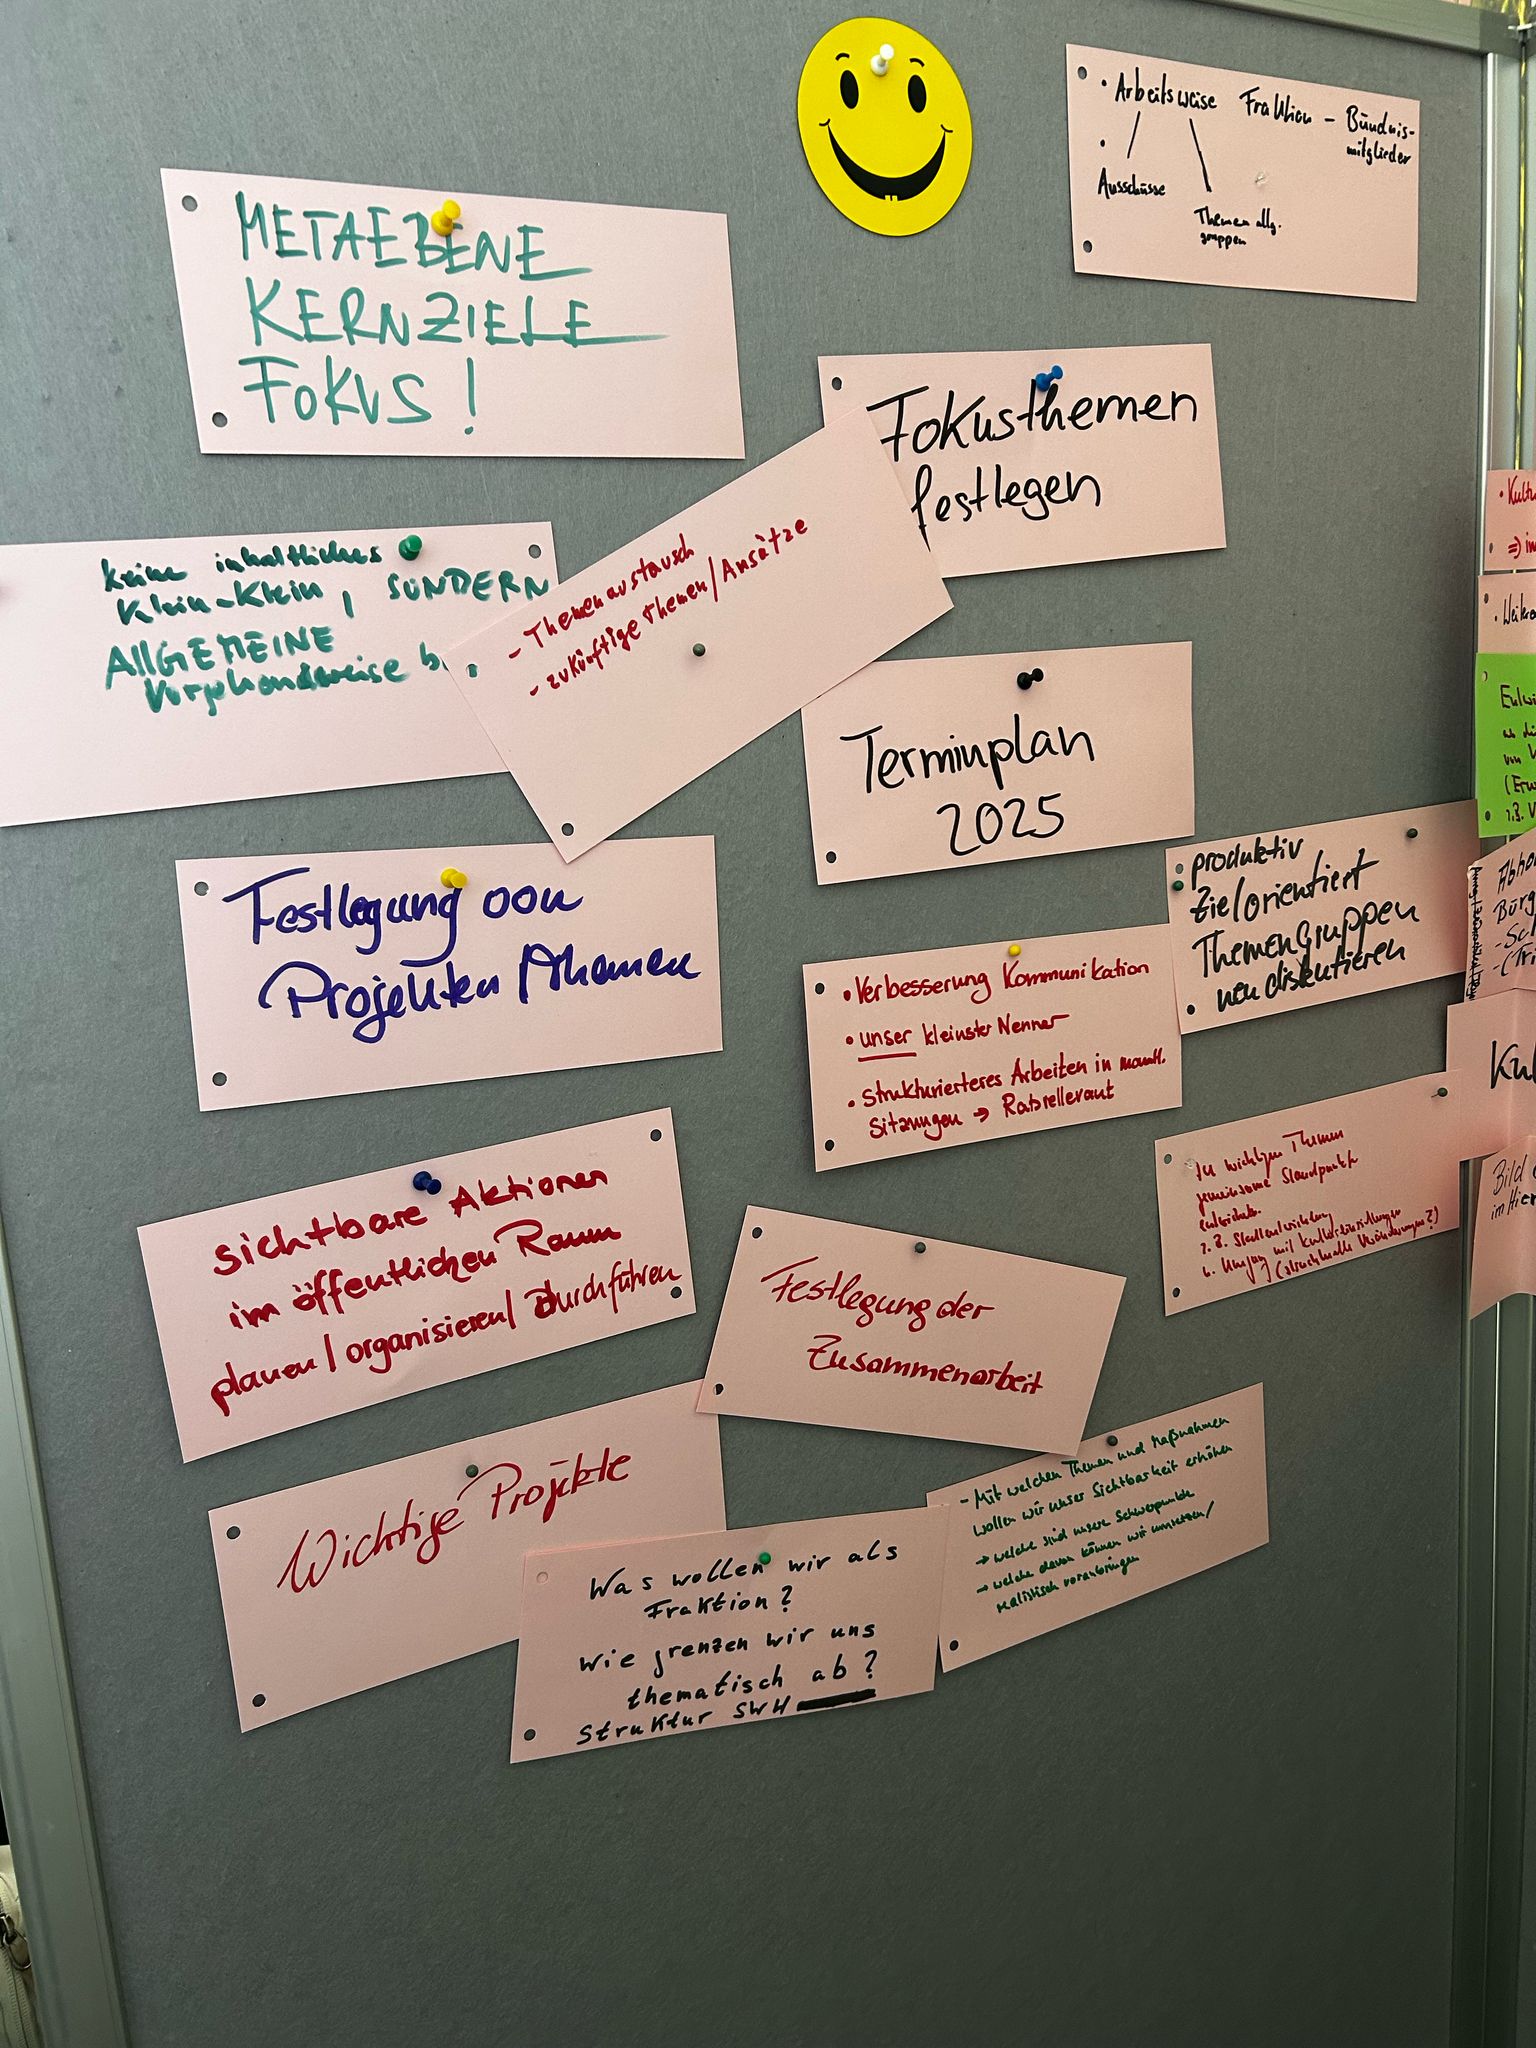 METAEBENE
KERNZIELE
FOKUS!
• Arbeitsweise Fraktion - Bündnis-
mitglieder
• Ausschüsse
Themen allg.
gruppen
Fokusthemen
festlegen
keine inhaltliches
Klein-Klein, SONDERN
ALLGEMEINE
Vorgehensweise b
- Themenaustausch
- zukünftige Themen/Ansätze
Terminplan
2025
Festlegung von
Projekten/Themen
produktiv
Zielorientiert
Themengruppen
neu diskutieren
• Verbesserung Kommunikation
• unser kleinster Nenner
• strukturierteres Arbeiten in monatl.
Sitzungen → Ratsrellevant
sichtbare Aktionen
im öffentlichen Raum
planen/organisieren/Durchführen
Festlegung der
Zusammenarbeit
Zu wichtigen Themen
gemeinsame Standpunkte
z.B. Stadtentwicklung
Umgang mit Kultureinrichtungen
Wichtige Projekte
- Mit welchen Themen und Maßnahmen
wollen wir unser Sichtbarkeit erhöhen
→ welche sind unsere Schwerpunkte
→ welche davon können wir umsetzen/
realistisch voranbringen
Was wollen wir als
Fraktion?
Wie grenzen wir uns
thematisch ab?
Struktur SWH
• Kultu
⇒ in
von V
z.B. V
Bürg
Kul
Bild
im Hier